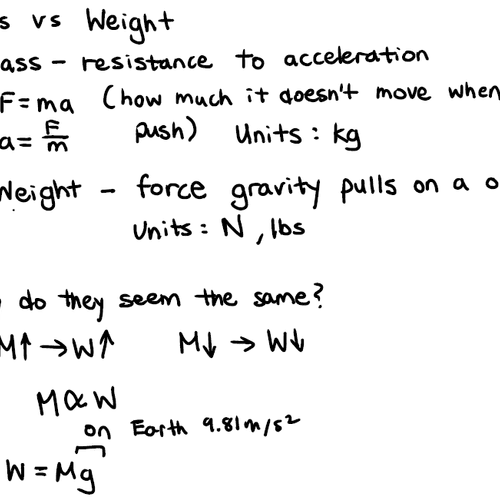 s vs Weight
ass - resistance to acceleration
F=ma (how much it doesn't move when
a=F/m push) Units: kg
Weight - force gravity pulls on a o
Units: N, lbs
do they seem the same?
M↑ → W↑ M↓ → W↓
M∝W
on Earth 9.81m/s²
W = Mg